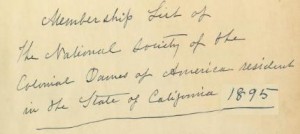 Membership List of
The National Society of the
Colonial Dames of America resident
in the State of California 1895